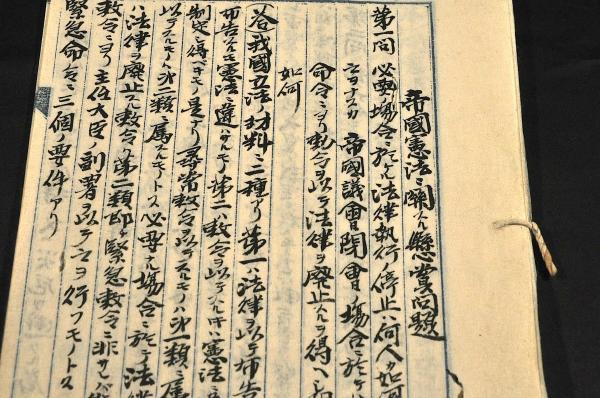 帝國憲法ニ關スル懸賞問題
第一問 必要ノ場合ニ於ケル法律執行ノ停止ハ何人カ如何
之ヲナスカ 帝國議會閉會ノ場合ニ於ケル
命令ニヨリ勅令ヲ以テ法律ヲ廢止スルヲ得ヘキ
如何
答 我國立法材料ニ二種アリ第一ハ法律ヲ以テ布告
布告スルモ憲法ニ違ハサルモノ第二ハ勅令ヲ以テスル
制定シ得ベキモノ是ナリ尋常勅令ヲ以テスルモノハ第一類ニ屬
以テスルモノハ第二類ニ屬スルモノトス必要ナル場合ニ於テ法律
ハ法律ヲ廢止スル勅令ハ第二類即チ緊急勅令ニ非サレバ
勅令ニヨリ主任大臣ノ副署ヲ以テ之ヲ行フモノトス
緊急命令ニ三個ノ要件アリ